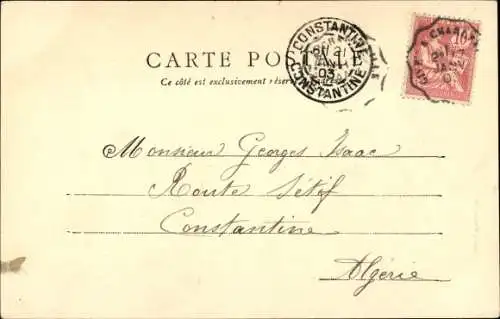 CARTE POSTALE
Ce côté est exclusivement réser
CONSTANTINE
CONSTANTINE
03
10
Monsieur Georges Isaac
Route Sétif
Constantine
Algérie